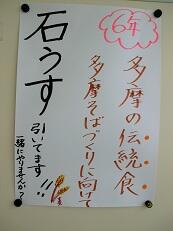 6年
多摩の伝統食
多摩そばづくりに向けて
石うす
引いてます!!
一緒にやりませんか?